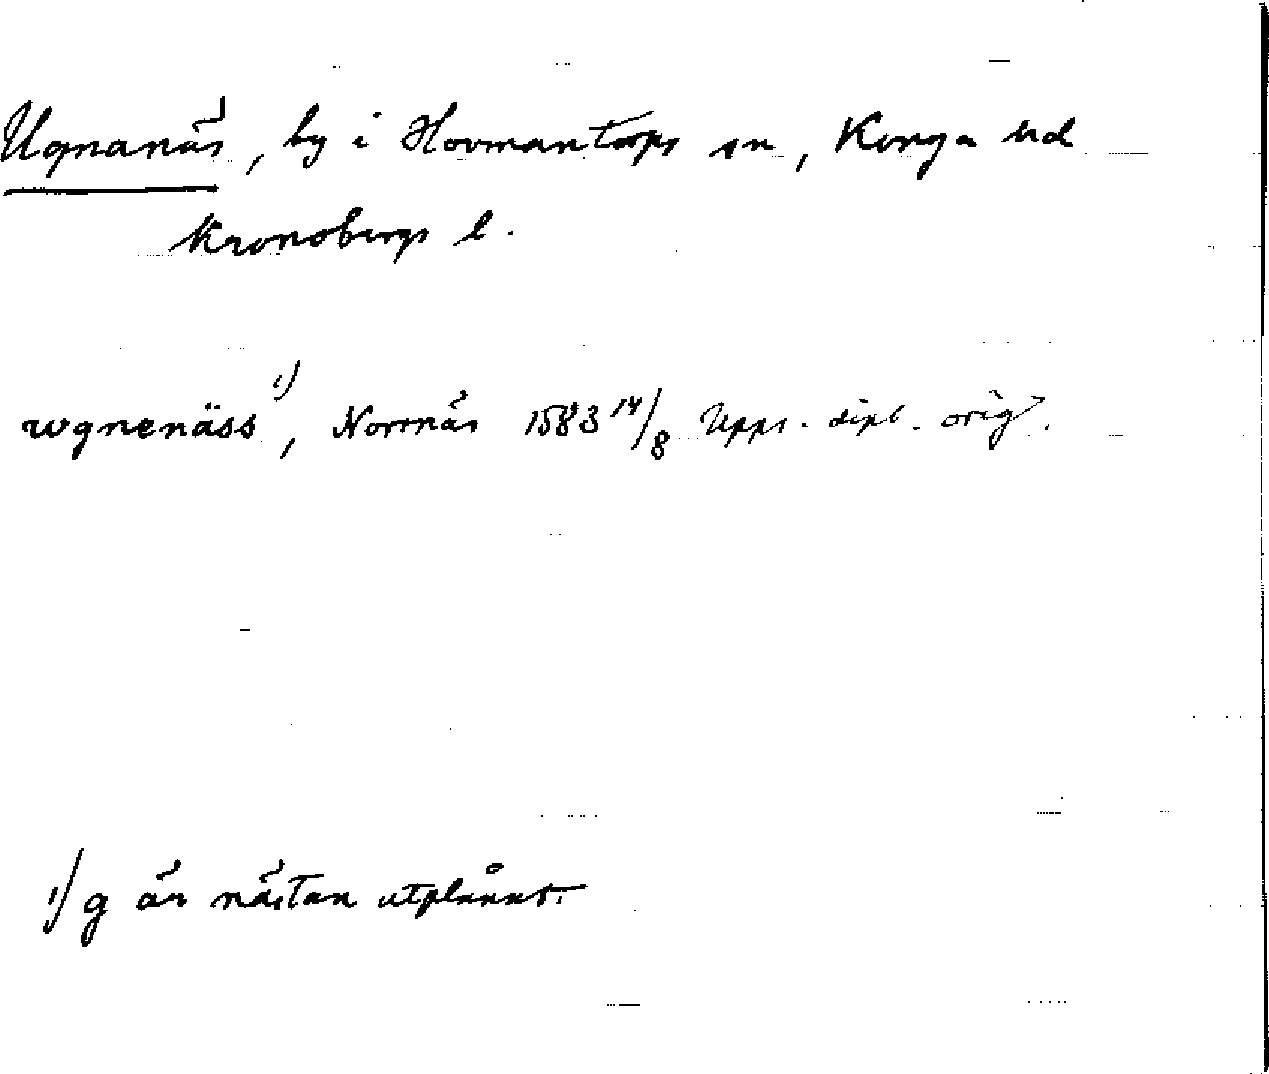 Ugnanäs, by i Hovmantorps sn, Konga hd
Kronobergs l.
wgnenäss ¹⁾, Norrnäs 1583 14/8 Upps. dipl. orig.
1) g är nästan utplånat.